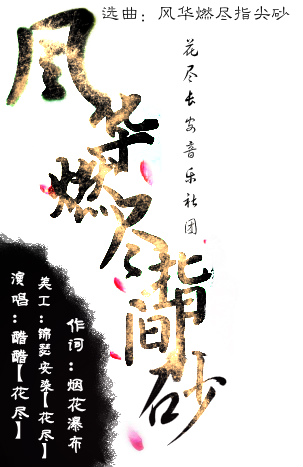 选曲：风华燃尽指尖砂
风华燃尽指间砂
花尽长安音乐社团
作词：烟花瀑布
美工：锦瑟安染【花尽】
演唱：醋醋【花尽】